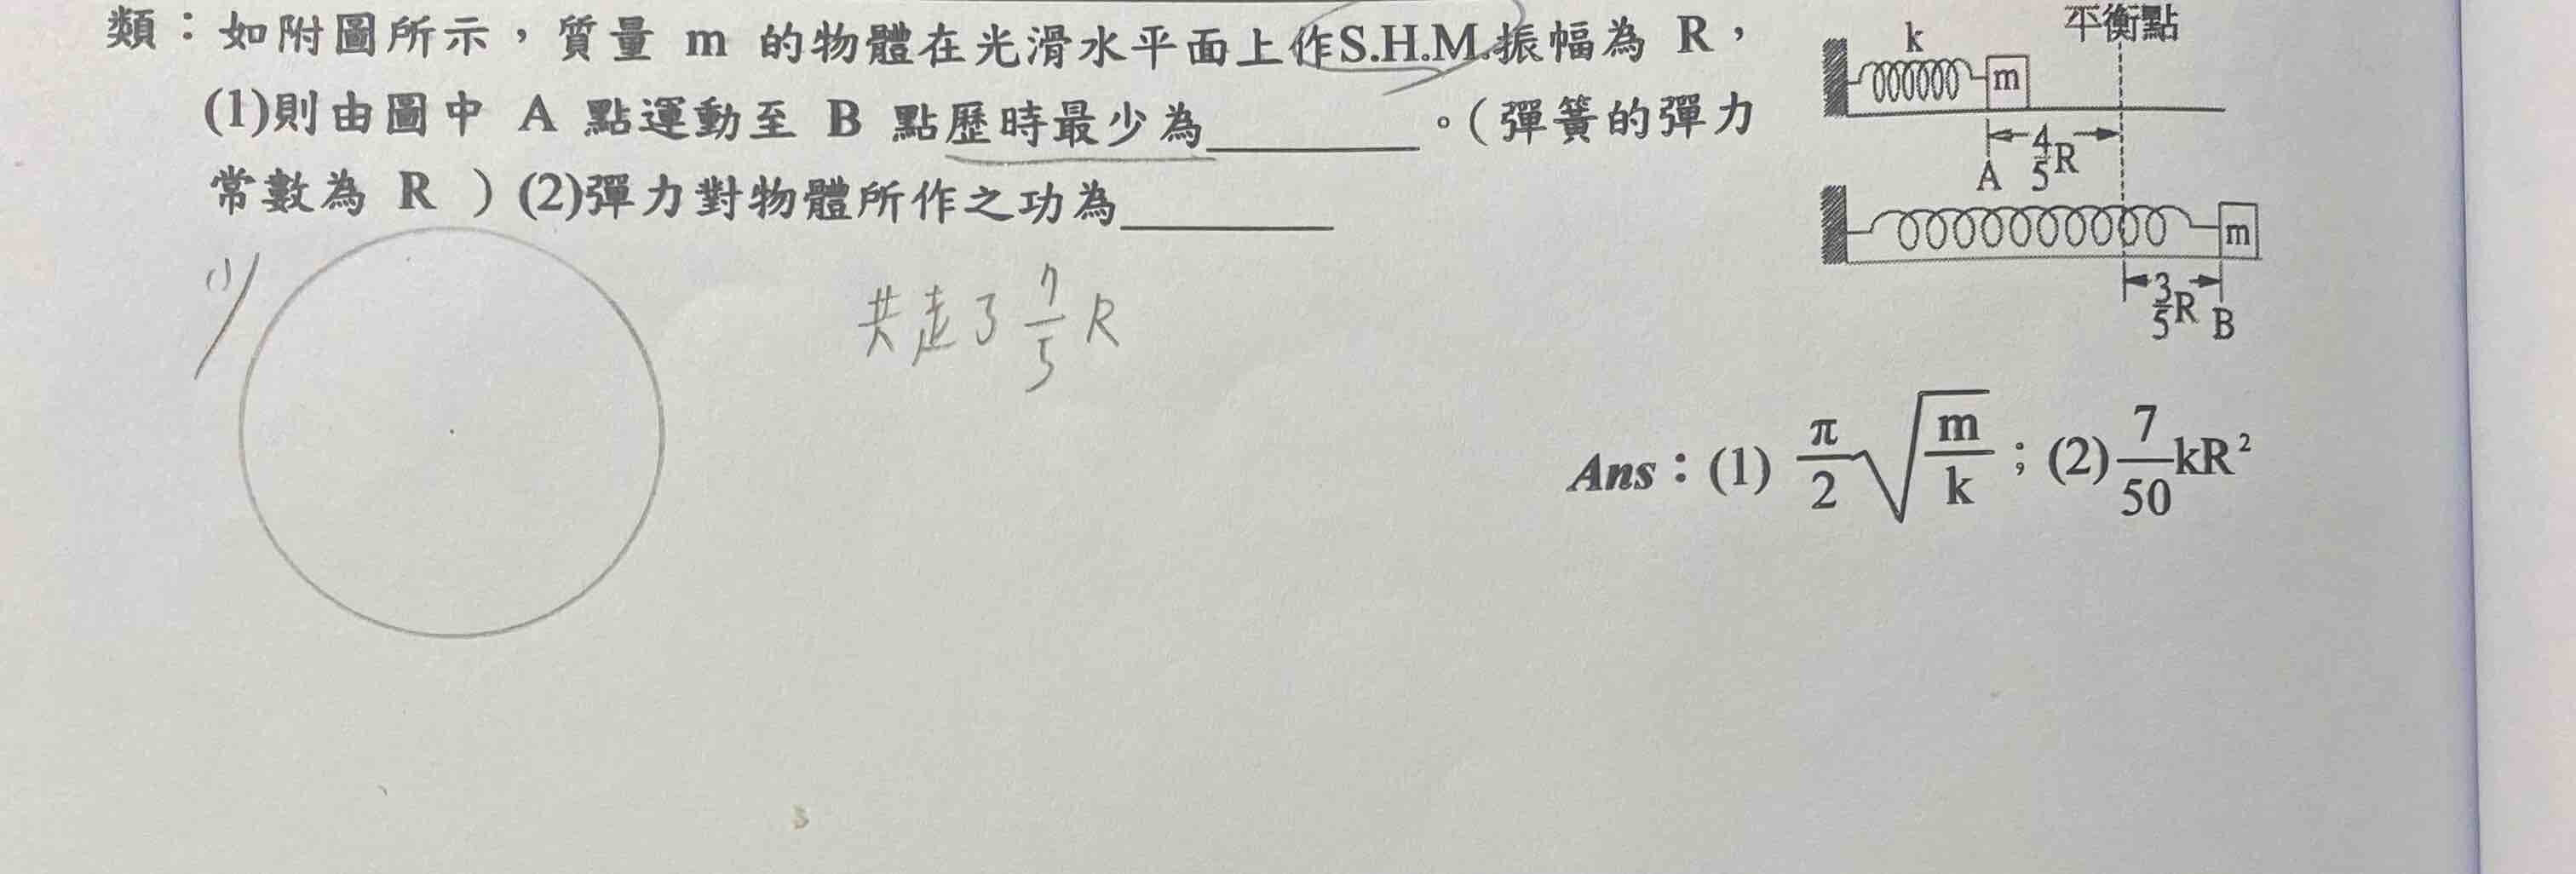 類：如附圖所示，質量 m 的物體在光滑水平面上作S.H.M.振幅為 R，
(1)則由圖中 A 點運動至 B 點歷時最少為________。(彈簧的彈力
常數為 R ) (2)彈力對物體所作之功為________
平衡點
k
m
A 4/5 R
m
3/5 R B
(1)
共走了 7/5 R
Ans：(1) π/2 √(m/k)；(2) 7/50 kR²